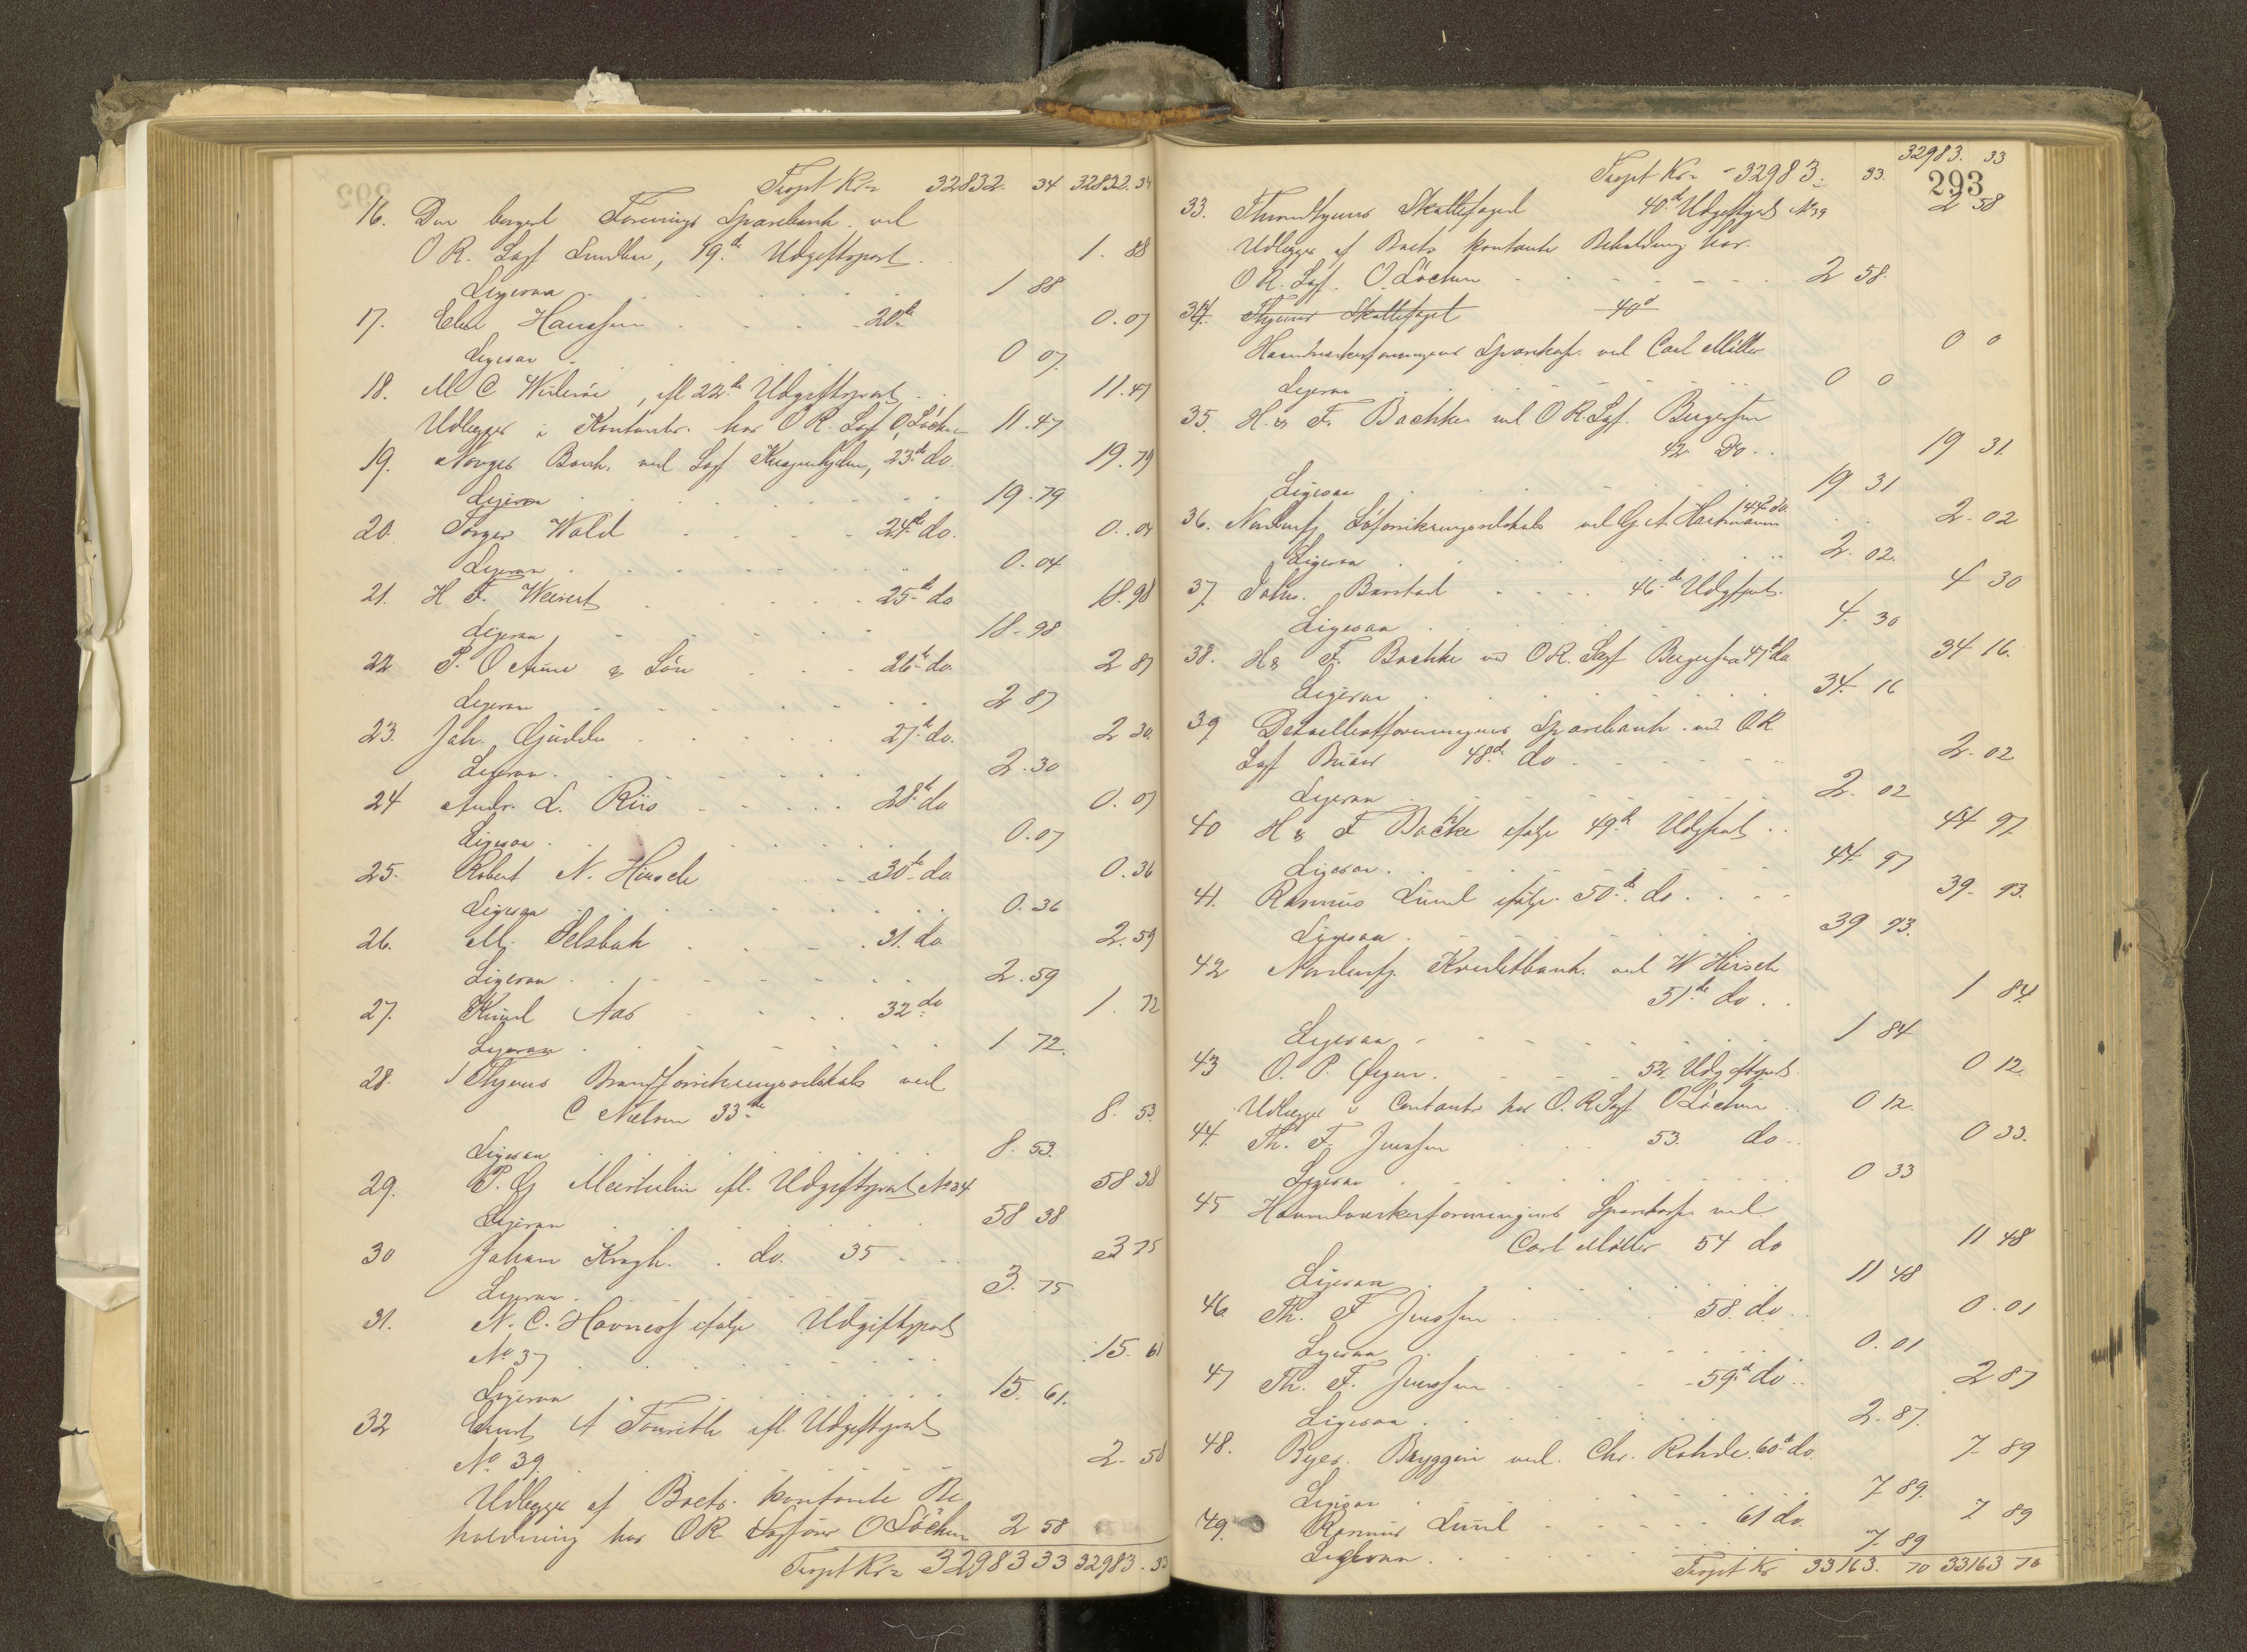 Trspt Kr= 32832. 34 32832. 34
16. Den Forenings Sparebank ved
O R. Sagf Lundken, 19.de Udgiftspost 1. 88
Ligesaa 1 88
17. Hanssen 20de 0.07
Ligesaa 0 07
18. M C Widerøe, ifl 22de Udgiftspost 11.47
Udlegges i Kontanter hos O R. Sagf O Löchen 11.47
19. Norges Bank ved Sagf 23de do. 19.79
Ligesaa 19.79
20. Torger Wold 24de do. 0.04
Ligesaa 0.04
21. H F. Weivert 25de do 18.98
Ligesaa 18.98
22 P. O Aune & Sön 26de do. 2 87
Ligesaa 2 87
23. Joh. Gjudde 27de do. 2 30.
Ligesaa 2.30
24 Andr. L. Riis 28de do 0.07
Ligesaa 0.07
25. Robert N. Hirsch 30te do 0.36
Ligesaa 0.36
26. M. Selsbak 31. do 2.59
Ligesaa 2.59
27. Knud Aas 32 do 1.72
Ligesaa 1 72.
28. Thjems Brandforsikringsselskab ved
C Nielsen 33de 8.53.
Ligesaa 8.53.
29. P. G ifl. Udgiftspost No 34 58 38
Ligesaa 58 38
30 Johan Kragh. do. 35 3 75
Ligesaa 3.75
31. N. C. Havness ifølge Udgiftspost
No 37 15. 61
Ligesaa 15. 61.
32 A ifl Udgiftspost
No 39. 2. 58
Udlegges af Boets kontante Be
holdning hos OR Sagfører O Löchen 2 58
Trspt Kr= 32983 33 32983. 33
32983. 33
Trspt Kr= 32983. 33.
293
33. Throndhjems Skattefoged 40de Udgiftspost No 39 2 58
Udlegges af Boets kontante Beholdning hos
O R. Sagf. O. Löchen 2 58.
34. Thjems Skattefoged 40d
Haandværkerforeningens Sparekasse ved Carl Möller 0 0
Ligesaa 0 0
35. H. & F. Bachke ved O R. Sagf. Bergersen
42 Do 19 31.
Ligesaa 19 31
36. Nordenfj. Söforsikringsselskab ved G A. Hartmann 44de do. 2.02
Ligesaa 2.02.
37. Johs. Barstad 46de Udgiftspost 4 30
Ligesaa 4. 30
38. H & F. Bachke ved O R. Sagf Bergersen 47d do 34 16.
Ligesaa 34. 16
39 Detaillistforeningens Sparebank ved O R
Sagf 48d. do 2.02
Ligesaa 2. 02
40 H & F Backe ifølge 49de Udgpost 44 97.
Ligesaa 44 97
41. Rasmus Lund ifølge 50de do 39. 93.
Ligesaa 39 93.
42 Nordenfj. Kreditbank ved W Hirsch
51de do 1 84.
Ligesaa 1 84
43 O. P. 52 Udgiftspost 0 12.
Udlegges i Contanter hos O. R Sagf O Löchen 0 12.
44. Th. F. Jenssen 53. do 0 33.
Ligesaa 0 33
45 Haandværkerforeningens Sparekasse ved
Carl Möller 54 do 11 48
Ligesaa 11 48
46. Th. F Jenssen 58. do 0.01
Ligesaa 0.01
47 Th. F. Jenssen 59d do 2 87
Ligesaa 2.87.
48. Byes. Bryggeri ved Chr. Rohde 60de do. 7 89
Ligesaa 7 89.
49. Rasmus Lund 61 do. 7 89
Ligesaa 7 89
Trspt Kr 33163. 70 33163 70